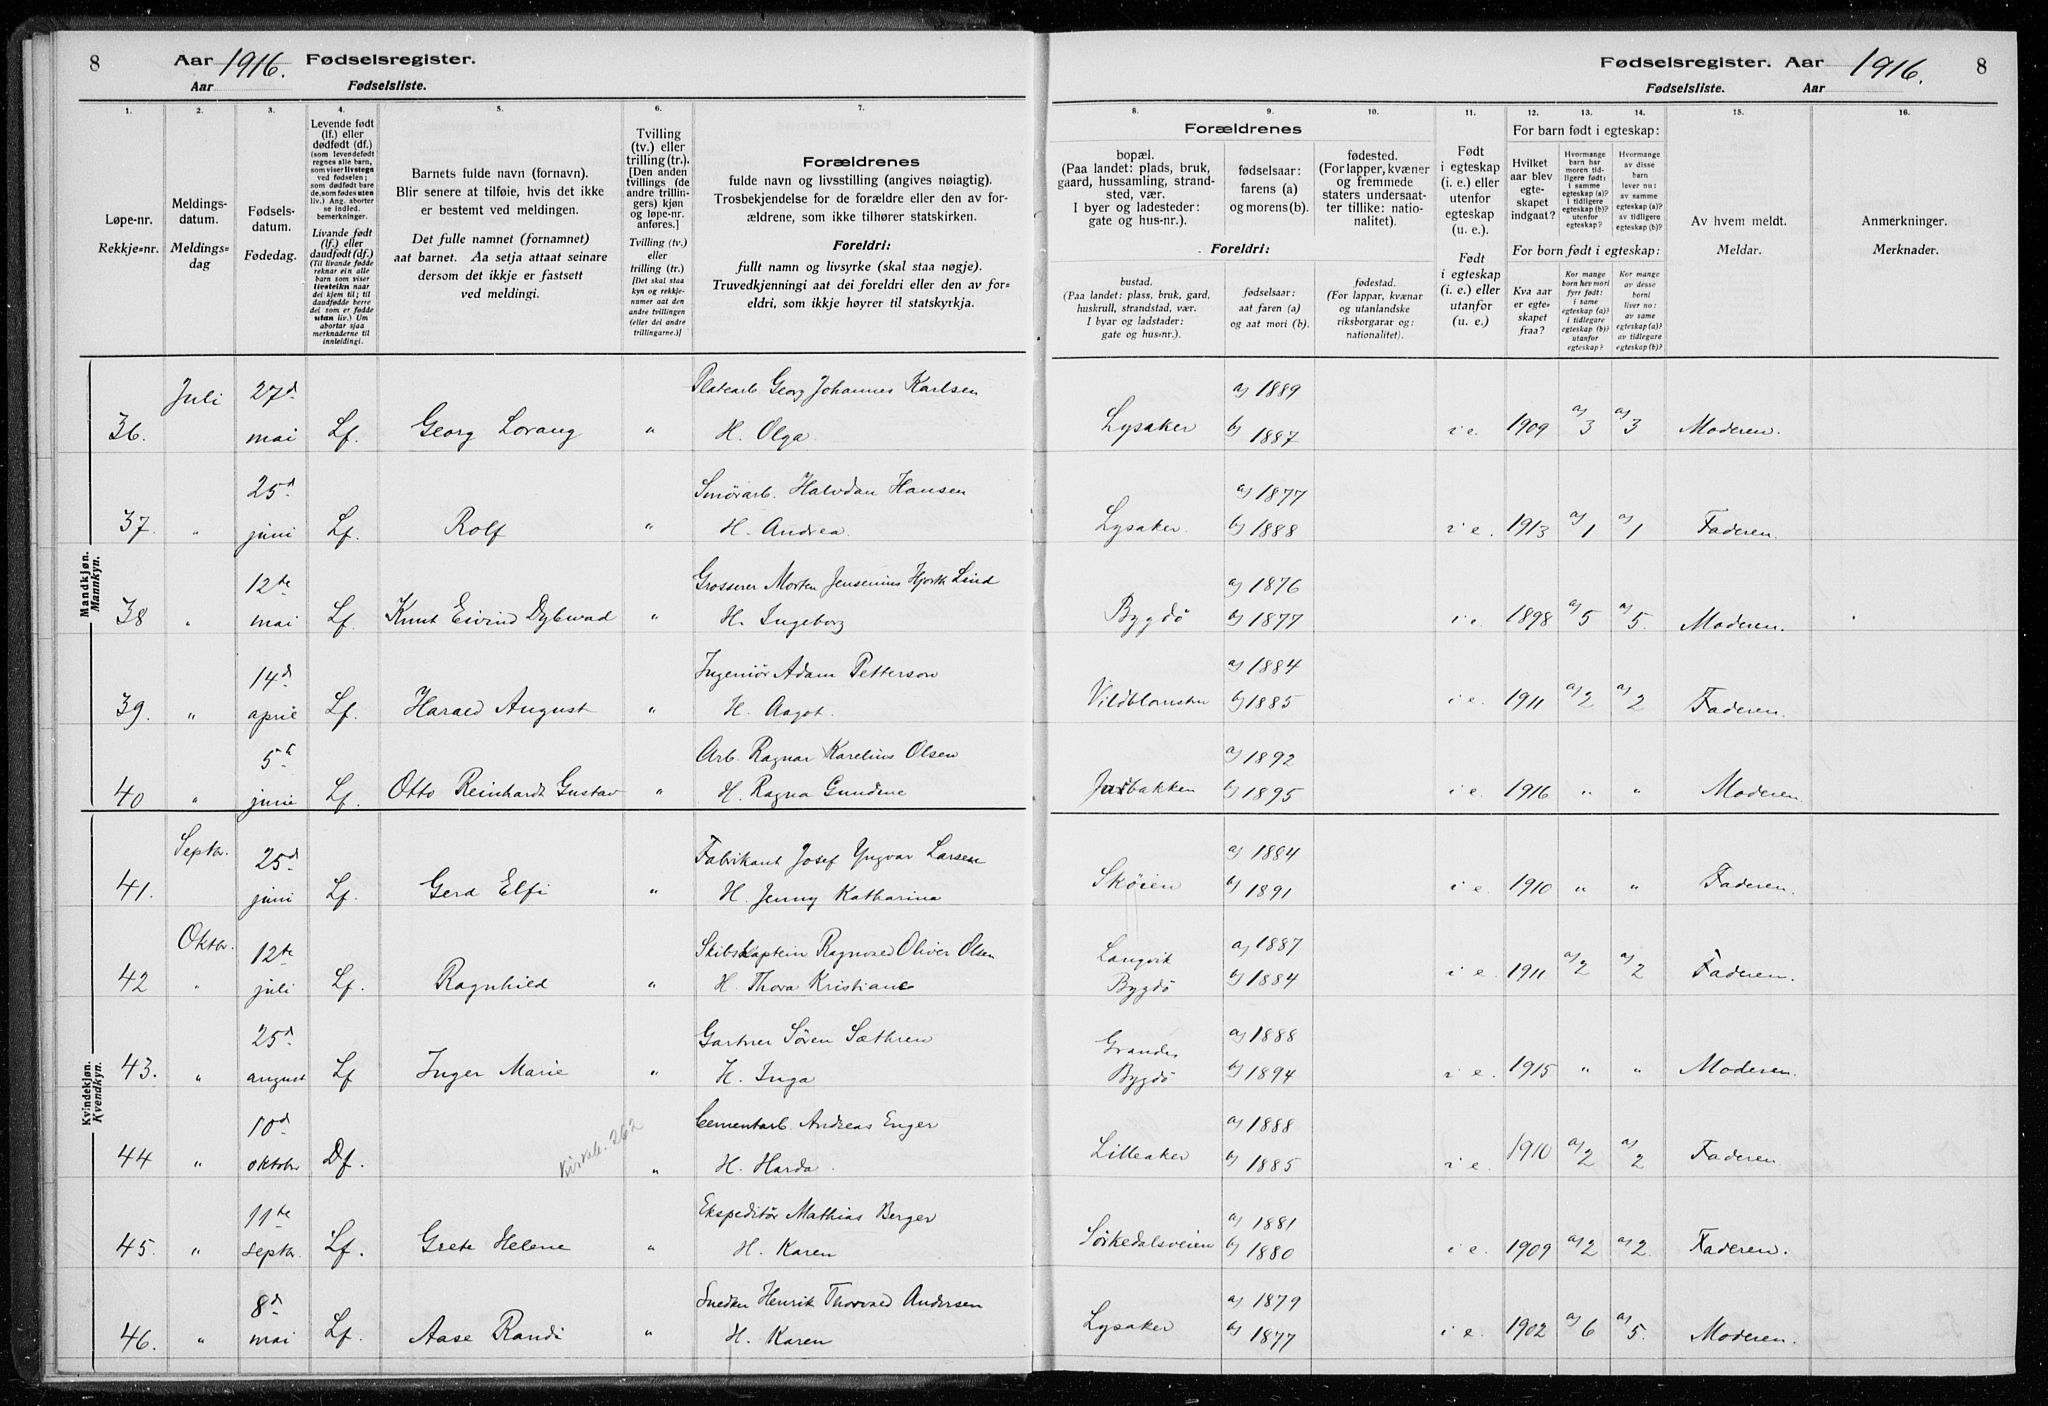 8 Aar 1916. Fødselsregister.
Aar Fødselsliste.
Fødselsregister. Aar 1916. 8
Fødselsliste. Aar
1. 2. 3. 4. 5. 6. 7.
Løpe-nr.
Rekkje-nr.
Meldings-
datum.
Meldings-
dag
Fødsels-
datum.
Fødedag.
Levende født
(lf.) eller
dødfødt (df.)
(som levendefødt
regnes alle barn,
som viser livstegn
ved fødselen;
som dødfødt bare
de, som fødes uten
liv.) Ang. aborter
se indled.
bemerkninger.
Livande født
(lf.) eller
daudfødt (df.)
(Til livande fødde
reknar ein alle
barn som viser
livsteikn naar
dei kjem til; til
daudfødde berre
dei som er fødde
utan liv.) Um
abortar sjaa
merknaderne til
innleidingi.
Barnets fulde navn (fornavn).
Blir senere at tilføie, hvis det ikke
er bestemt ved meldingen.
Det fulle namnet (fornamnet)
aat barnet. Aa setja attaat seinare
dersom det ikkje er fastsett
ved meldingi.
Tvilling
(tv.) eller
trilling (tr.).
[Den anden
tvillings (de
andre trillin-
gers) kjøn
og løpe-nr.
anføres.]
Tvilling (tv.)
eller
trilling (tr.)
[Det skal staa
kyn og rekkje-
numer aat den
andre tvillingen
(eller dei andre
trillingarne.)]
Forældrenes
fulde navn og livsstilling (angives nøiagtig).
Trosbekjendelse for de forældre eller den av for-
ældrene, som ikke tilhører statskirken.
Foreldri:
fullt namn og livsyrke (skal staa nøgje).
Truvedkjenningi aat dei foreldri eller den av for-
eldri, som ikkje høyrer til statskyrkja.
8. 9. 10. 11. 12. 13. 14. 15. 16.
Forældrenes
bopæl.
(Paa landet: plads, bruk,
gaard, hussamling, strand-
sted, vær.
I byer og ladesteder:
gate og hus-nr.).
fødselsaar:
farens (a)
og morens (b).
fødested.
(For lapper, kvæner
og fremmede
staters undersaat-
ter tillike: natio-
nalitet).
Foreldri:
bustad.
(Paa landet: plass, bruk, gard,
huskrull, strandstad, vær.
I byar og ladstader:
gate og hus-nr.).
fødselsaar:
aat faren (a)
og aat mori (b).
fødestad.
(For lappar, kvænar
og utanlandske
riksborgarar og:
nationalitet).
Født
i egteskap
(i. e.) eller
utenfor
egteskap
(u. e.).
Født
i egteskap
(i. e.) eller
utanfor
(u. e.).
For barn født i egteskap:
Hvilket
aar blev
egte-
skapet
indgaat?
Hvormange
barn har
moren tid-
ligere født:
i samme
egteskap (a)?
i tidligere
egteskap (b)?
utenfor
egteskap?
Hvormange
av disse
barn
lever nu:
av samme
egteskap (a)?
av tidligere
egteskap (b)?
For born født i egteskap:
Kva aar
er egte-
skapet
fraa?
Kor mange
born hev mori
fyrr født:
i same
egteskap (a)?
i tidlegare
egteskap (b)?
utanfor
egteskap?
Kor mange
av desse
borni
liver no:
av same
egteskap (a)?
av tidlegare
egteskap (b)?
Av hvem meldt.
Meldar.
Anmerkninger.
Merknader.
Mandkjøn.
Mannkyn.
36. Juli 27d mai Lf. Georg Lorang " Platearb. Georg Johannes Karlsen
H. Olga Lysaker a) 1889 b) 1887 i e. 1909 a) 3 a) 3 Moderen.
37. " 25d juni Lf. Rolf " Smørarb. Halvdan Hansen
H. Andrea. Lysaker. a) 1877 b) 1888 i e. 1913 a) 1 a) 1 Faderen.
38 " 12te mai Lf. Knut Eivind Dybwad " Grosserer Morten Jensenius Hjorth Lind
H. Ingeborg Bygdö a) 1876 b) 1877 i e. 1898 a) 5 a) 5. Moderen.
39. " 14d april Lf. Harald August " Ingeniør Adam Petterson
H. Aagot. Vildblomsten a) 1884 b) 1885 i e. 1911 a) 2 a) 2 Faderen.
40 " 5t juni Lf. Otto Reinhardt Gustav " Arb. Ragnar Karelius Olsen
H. Ragna Gundine a) 1892 b) 1895 i e. 1916 " " Moderen.
Kvindekjøn.
Kvendkyn.
41. Septbr. 25d juni Lf. Gerd Elfi " Fabrikant Josef Yngvar Larsen
H. Jenny Katharina Sköien a) 1884 b) 1891 i e. 1910 " " Faderen.
42 Oktbr. " 12te juli Lf. Ragnhild " Skibskaptein Ragnvald Oliver Olsen
H. Thora Kristiane Langvik Bygdö a) 1887 b) 1884 i e. 1911 a) 2 a) 2 Faderen.
43. " 25d august Lf Inger Marie " Gartner Søren Sæthren
H. Inga Grandes Bygdö a) 1888 b) 1894 i e. 1915 " " Moderen.
44 " 10d oktober Df. 262 " Cementarb. Andreas Enger
H. Harda. Lilleaker a) 1888 b) 1885 i e. 1910 a) 2 a) 2 Faderen.
45. " 11te septbr. Lf. Grete Helene " Ekspeditör Mathias Berger
H. Karen Sörkedalsveien a) 1881 b) 1880 i e. 1909 a) 2 a) 2. Faderen.
46. " 8d mai Lf. Aase Randi " Snedker Henrik Thorvald Andersen
H. Karen Lysaker a) 1879 b) 1877 i e. 1902 a) 6 a) 5. Moderen.